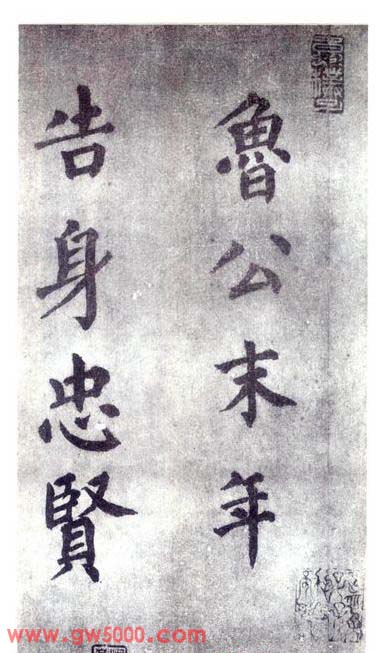 魯公末年
告身忠賢
www.gw5000.com